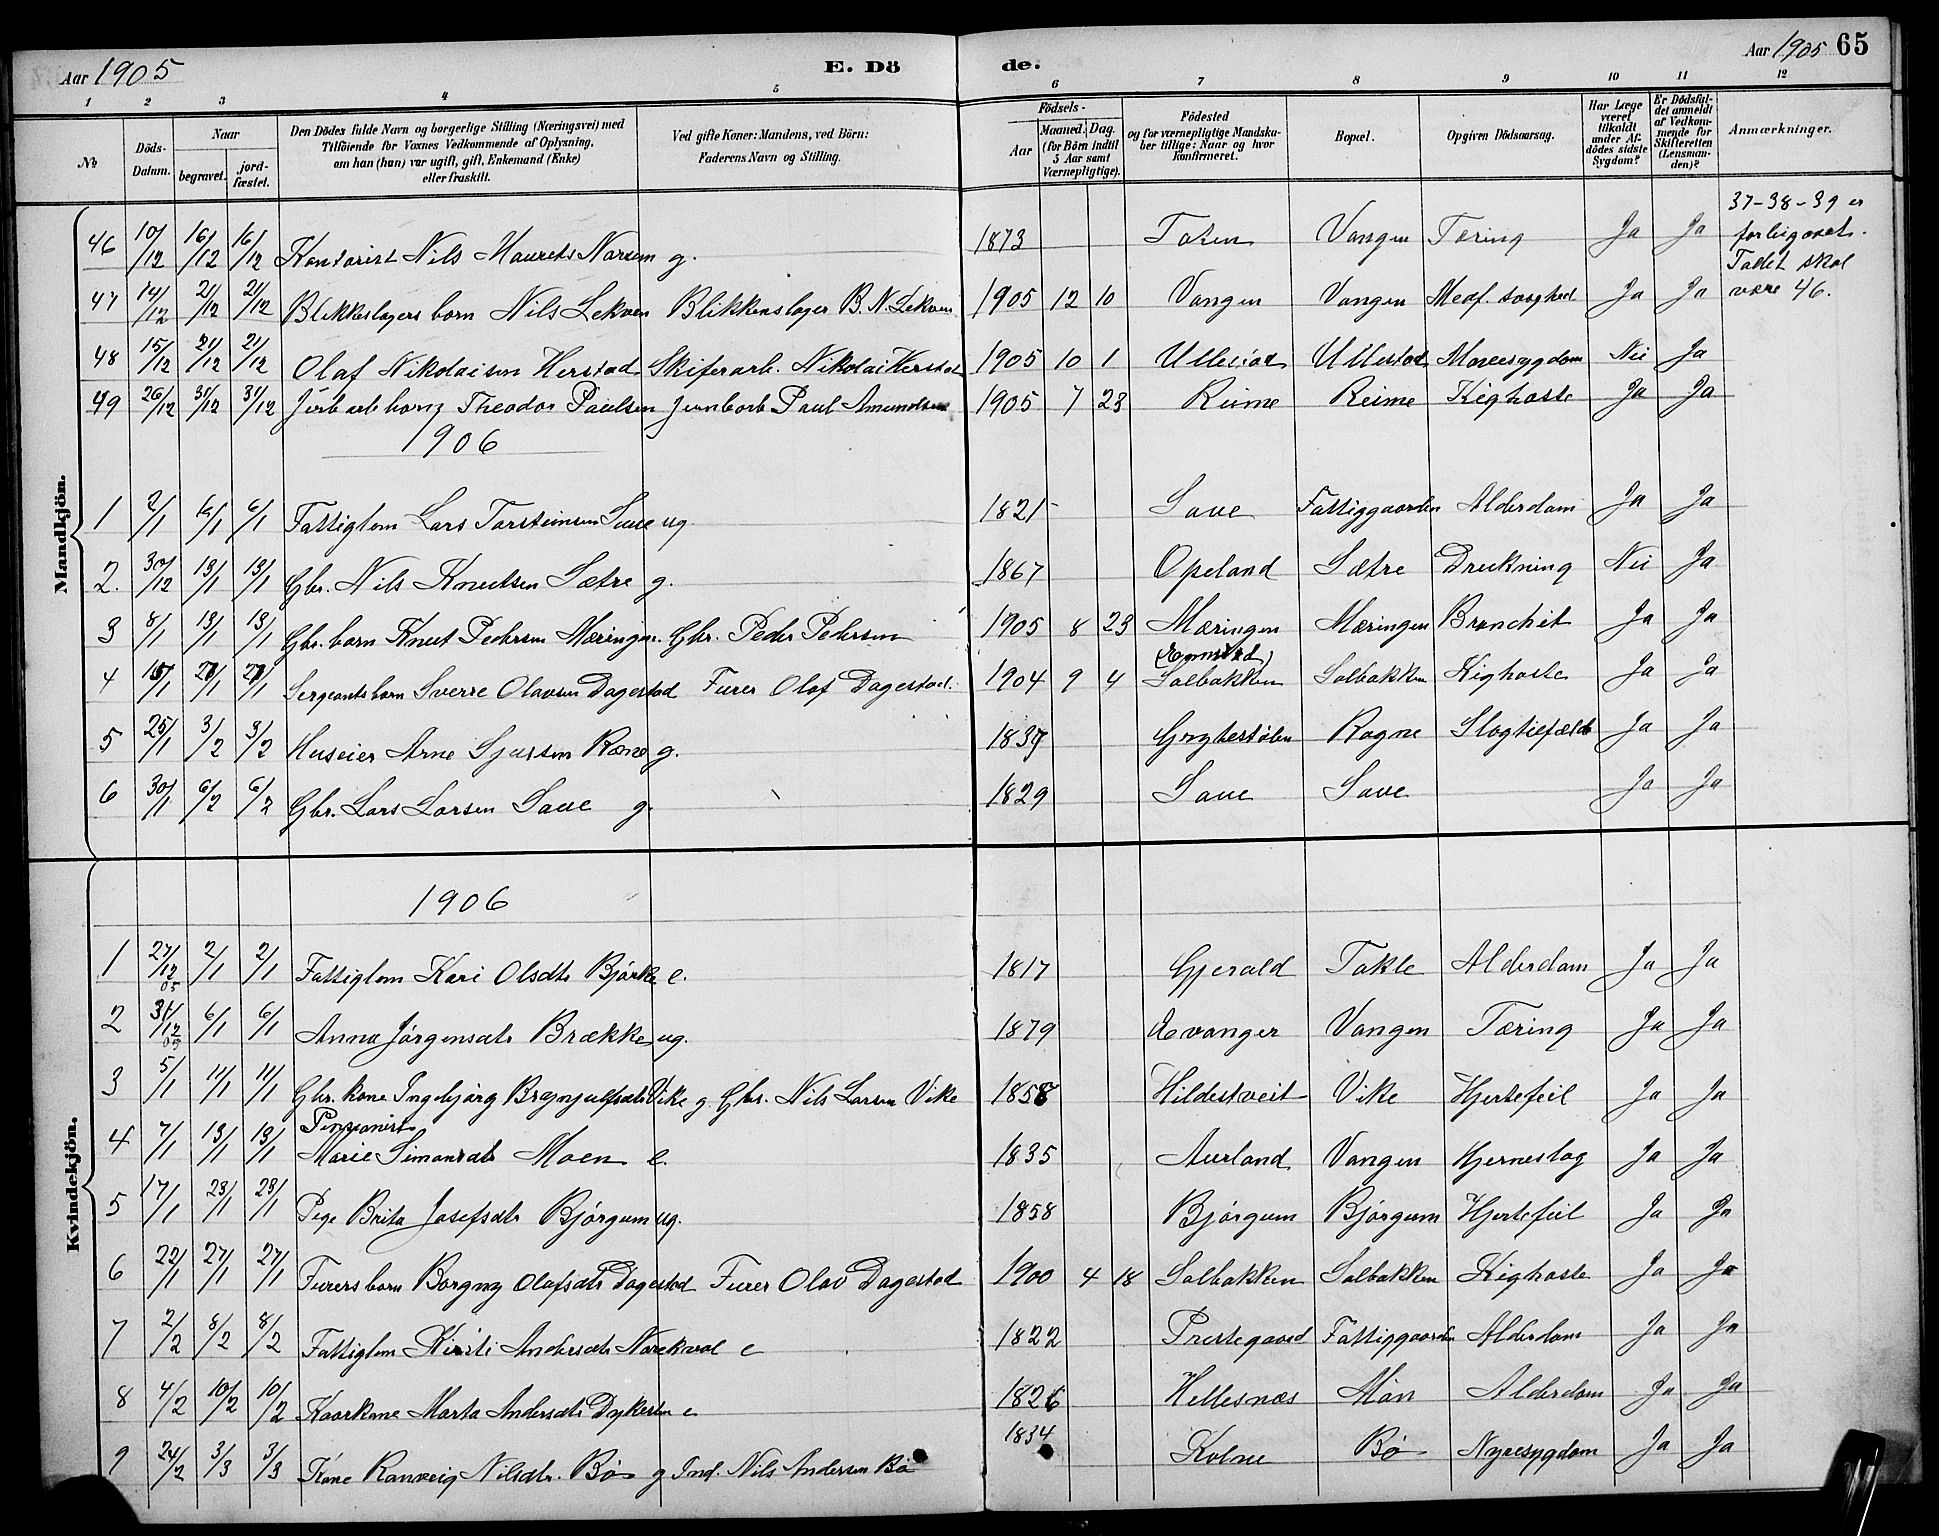 Aar 1905 E. Dö de. Aar 1905 65
1 2 3 4 5 6 7 8 9 10 11 12
No Döds-Datum. Naar begravet. jord-fæstet. Den Dödes fulde Navn og borgerlige Stilling (Næringsvei) med Tilföiende for Voxnes Vedkommende af Oplysning, om han (hun) var ugift, gift, Enkemand (Enke) eller fraskilt. Ved gifte Koner: Mandens, ved Börn: Faderens Navn og Stilling. Födsels- Aar Maaned. Dag. (for Börn indtil 5 Aar samt Værnepligtige). Födested og for værnepligtige Mandska-ber tillige: Naar og hvor konfirmeret. Bopæl. Opgiven Dödsaarsag. Har Læge været tilkaldt under Af-dödes sidste Sygdom? Er Dödsfal-det anmeldt af Vedkom-mende for Skifteretten (Lensman-den)? Anmærkninger.
Mandkjön.
46 10/12 16/12 16/12 Kontorist Nils Maurits g. 1873 Vangen Tæring Ja Ja 37-38-39 er
Tallet skal
være 46.
47 14/12 21/12 21/12 Blikkeslagers barn Nils Lekven Blikkenslager B. N. Lekven 1905 12 10 Vangen Vangen Medf. svaghed Ja Ja
48 15/12 21/12 21/12 Olaf Nikolaisen Herstad Skiferarb. Nikolai Herstad 1905 10 1 Ullestad Ullestad Mavesygdom Nei Ja
49 26/12 31/12 31/12 Theodor Paulsen Jernbarb. Paul Amundsen 1905 7 23 Reime Reime Kighoste Ja Ja
1906
1 2/1 6/1 6/1 Fattiglem Lars Torsteinsen Saue ug. 1821 Saue Fattiggaarden Alderdom Ja Ja
2. 30/12 13/1 13/1 Gbr. Nils Knutsen Sætre g. 1867 Opeland Sætre Drukning Nei Ja
3 8/1 13/1 13/1 Gbr. barn Knut Pedersen Mæringen Gbr. Peder Pedersen 1905 8 23 Mæringen Mæringen Bronchit Ja Ja
4 15/1 21/1 21/1 Sergeants barn Sverre Olavsen Dagestad Furer Olaf Dagestad. 1904 9 4 Solbakken Solbakken Kighoste Ja Ja
5 25/1 3/2 3/2 Huseier Arne Sjursen g. 1837 Rogne Ja Ja
6 30/1 6/2 6/2 Gbr. Lars Larsen Saue g. 1829 Saue Saue Ja Ja
Kvindekjön.
1906
1 27/12 05 2/1 2/1 Fattiglem Kari Olsdtr Björke e. 1817 Gjerald Takle Alderdom Ja Ja
2 31/12 05 6/1 6/1 Anna Jörgensdtr Brække ug. 1879 Evanger Vangen Tæring Ja Ja
3 5/1 11/1 11/1 Gbr. kone Ingebjörg Brynjulfsdtr Vike g. Gbr. Nils Larsen Vike 1858 Hildestveit Vike Hjertefeil Ja Ja
Pensionist
4 7/1 13/1 13/1 Marie Simonsdtr Moen e. 1835 Aurland Vangen Hjerneslag Ja Ja
5 17/1 23/1 23/1 Pige Brita Josefsdtr Björgum ug. 1858 Björgum Björgum Hjertefeil Ja Ja
6 22/1 27/1 27/1 Furers barn Borgny Olafsdtr Dagestad Furer Olav Dagestad 1900 4 18 Solbakken Solbakken Kighoste Ja Ja
7 2/2 8/2 8/2 Fattiglem Kirsti Andersdtr e 1822 Prestegaard Fattiggaarden Alderdom Ja Ja
8 4/2 10/2 10/2 Kaarkone Marta Andersdtr Dykesten e 1826 Hellesnæs Møn Alderdom Ja Ja
9 24/2 3/3 3/3 Kone Ranveig Nilsdtr. Bö g Ind. Nils Andersen Bö 1834 Kolve Bö Nyresygdom Ja Ja